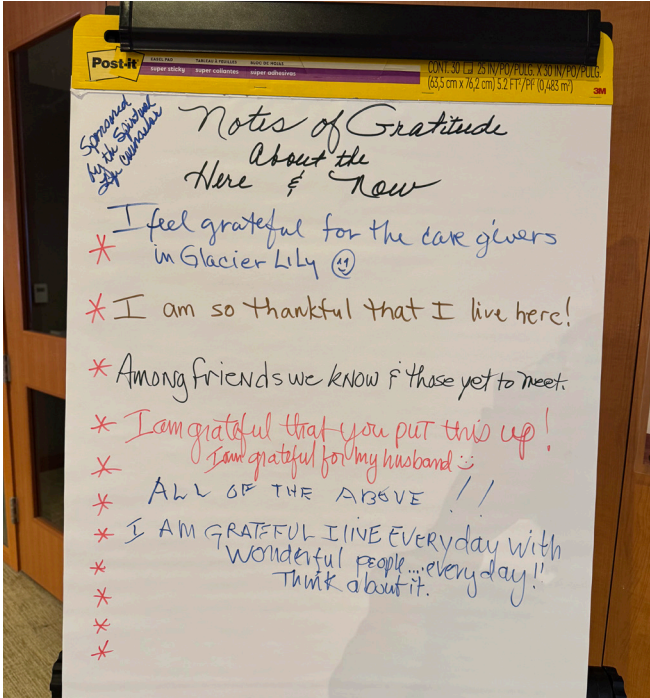 Post-it
EASEL PAD TABLEAU À FEUILLES BLOC DE MESAS
super sticky super collantes super adhesivas
CONT. 30 25 IN/PO/PULG. X 30 IN/PO/PULG.
(63,5 cm x 76,2 cm) 5.2 FT²/PF (0,483 m²)
3M
Sponsored
by the Spiritual
Life Counselor
Notes of Gratitude
About the
Here & Now
I feel grateful for the care givers
* in Glacier Lily
* I am so thankful that I live here!
* Among friends we know & those yet to meet.
* I am grateful that you put this up!
* I am grateful for my husband :)
* ALL OF THE ABOVE !!
* I AM GRATEFUL I lIVE EVERYday with
* Wonderful people....everyday!!
* Think about it.
*
*